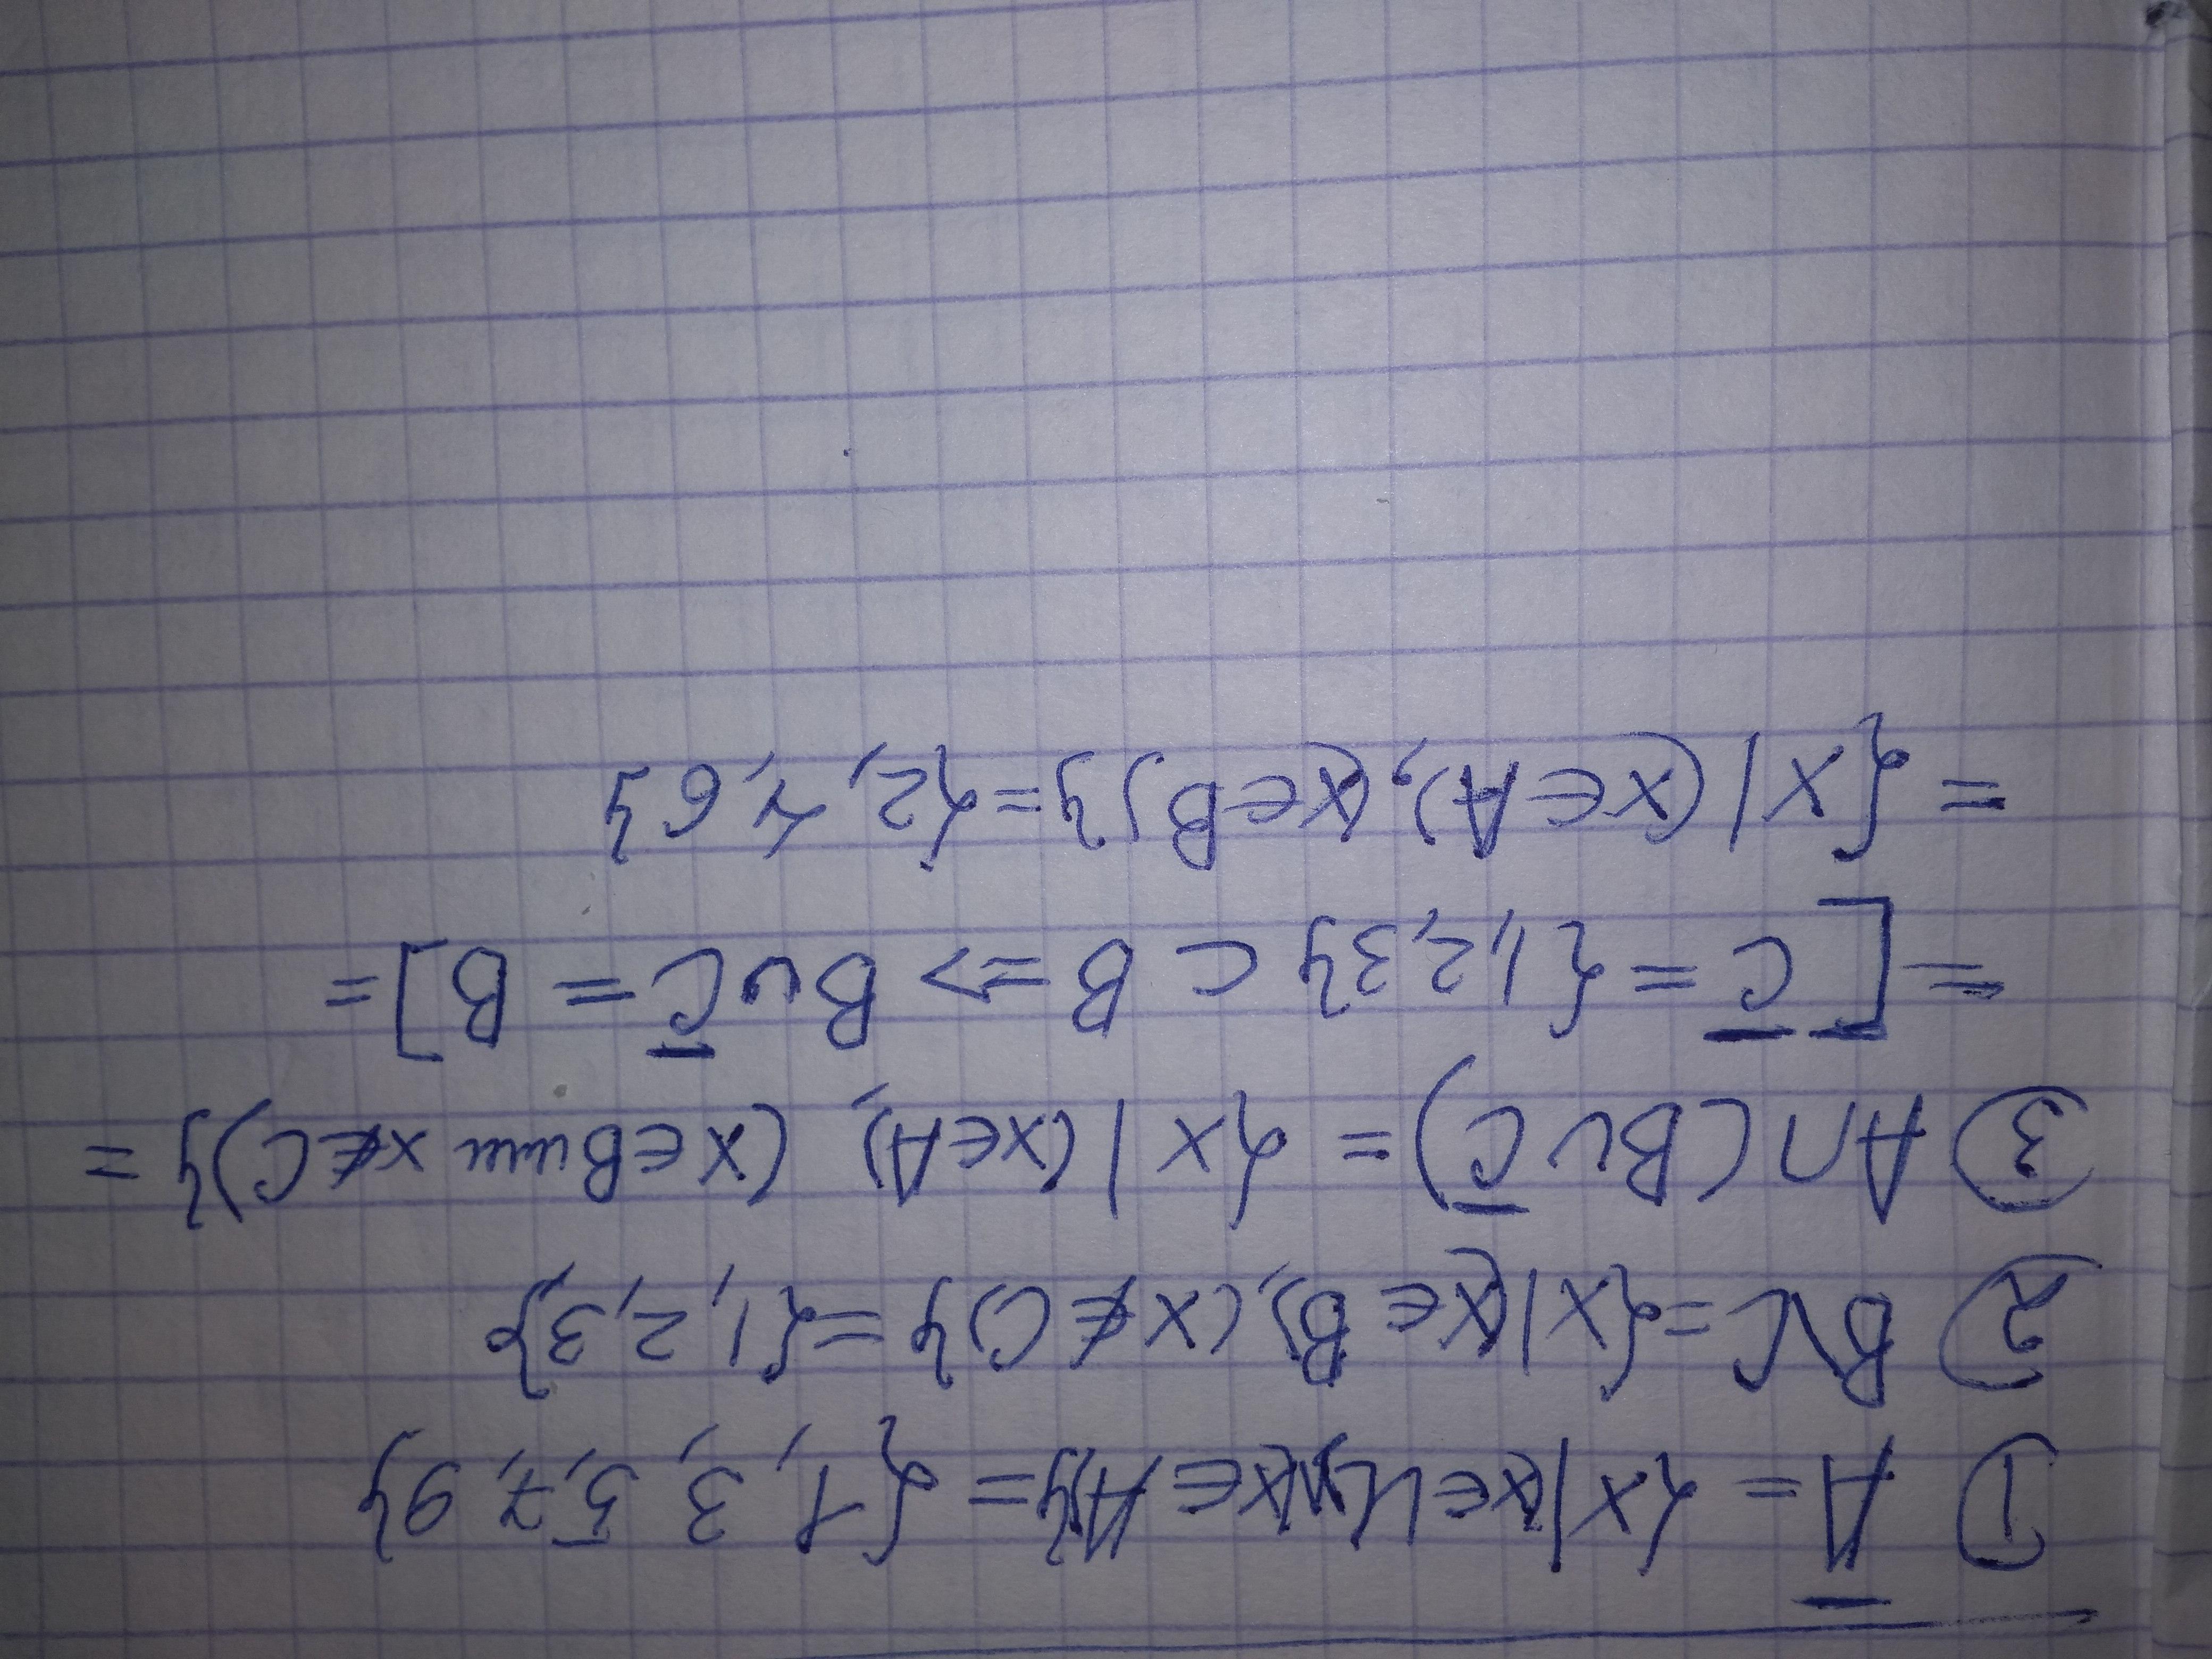 ① A̅ = {x|(x∈U),(x∈A)} = {1, 3, 5, 7, 9}
② B\C = {x|(x∈B),(x∉C)} = {1, 2, 3}
③ A∩(B∪C̅) = {x|(x∈A), (x∈B или x∉C)} =
= [C̅ = {1,2,3} ⊂ B => B∪C̅ = B] =
= {x|(x∈A),(x∈B)} = {2, 4, 6}